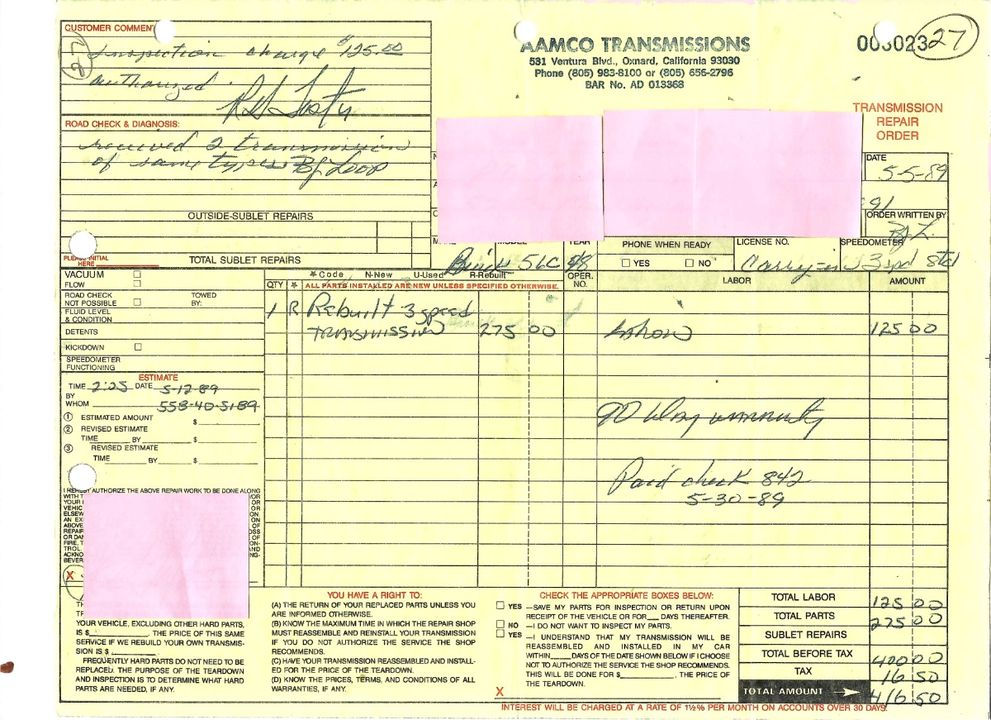 CUSTOMER COMMENT
Inspection charge $125.00
authorized
27
ROAD CHECK & DIAGNOSIS:
received 2 transmission
of same types By Loop
OUTSIDE-SUBLET REPAIRS
PLEASE INITIAL HERE
TOTAL SUBLET REPAIRS
AAMCO TRANSMISSIONS
531 Ventura Blvd., Oxnard, California 93030
Phone (805) 983-8100 or (805) 656-2796
BAR No. AD 013368
27
TRANSMISSION
REPAIR
ORDER
DATE
5-5-89
ORDER WRITTEN BY
MODEL
YEAR
PHONE WHEN READY
LICENSE NO.
SPEEDOMETER
Buick 56C 58
YES NO
Carry-in 3 spd Std
VACUUM
FLOW
ROAD CHECK TOWED
NOT POSSIBLE BY:
FLUID LEVEL
& CONDITION
DETENTS
KICKDOWN
SPEEDOMETER
FUNCTIONING
ESTIMATE
TIME 2:25 DATE 5-12-89
BY
WHOM 558-40-5189
1 ESTIMATED AMOUNT $
2 REVISED ESTIMATE
TIME BY $
3 REVISED ESTIMATE
TIME BY $
*Code N-New U-Used R-Rebuilt
QTY * ALL PARTS INSTALLED ARE NEW UNLESS SPECIFIED OTHERWISE.
OPER. NO.
LABOR
AMOUNT
1 R Rebuilt 3 speed
TRANSMISSION 275 00
Labor 125 00
90 Day warranty
Paid check 842
5-30-89
I HEREBY AUTHORIZE THE ABOVE REPAIR WORK TO BE DONE ALONG
X
YOUR VEHICLE, EXCLUDING OTHER HARD PARTS,
IS $ . THE PRICE OF THIS SAME
SERVICE IF WE REBUILD YOUR OWN TRANSMIS-
SION IS $ .
FREQUENTLY HARD PARTS DO NOT NEED TO BE
REPLACED. THE PURPOSE OF THE TEARDOWN
AND INSPECTION IS TO DETERMINE WHAT HARD
PARTS ARE NEEDED, IF ANY.
YOU HAVE A RIGHT TO:
(A) THE RETURN OF YOUR REPLACED PARTS UNLESS YOU
ARE INFORMED OTHERWISE.
(B) KNOW THE MAXIMUM TIME IN WHICH THE REPAIR SHOP
MUST REASSEMBLE AND REINSTALL YOUR TRANSMISSION
IF YOU DO NOT AUTHORIZE THE SERVICE THE SHOP
RECOMMENDS.
(C) HAVE YOUR TRANSMISSION REASSEMBLED AND INSTALL-
ED FOR THE PRICE OF THE TEARDOWN.
(D) KNOW THE PRICES, TERMS, AND CONDITIONS OF ALL
WARRANTIES, IF ANY.
CHECK THE APPROPRIATE BOXES BELOW:
YES —SAVE MY PARTS FOR INSPECTION OR RETURN UPON
RECEIPT OF THE VEHICLE OR FOR DAYS THEREAFTER.
NO —I DO NOT WANT TO INSPECT MY PARTS.
YES —I UNDERSTAND THAT MY TRANSMISSION WILL BE
REASSEMBLED AND INSTALLED IN MY CAR
WITHIN DAYS OF THE DATE SHOWN BELOW IF I CHOOSE
NOT TO AUTHORIZE THE SERVICE THE SHOP RECOMMENDS.
THIS WILL BE DONE FOR $ , THE PRICE OF
THE TEARDOWN.
X
TOTAL LABOR 125 00
TOTAL PARTS 275 00
SUBLET REPAIRS
TOTAL BEFORE TAX 400 00
TAX 16 50
TOTAL AMOUNT 416.50
INTEREST WILL BE CHARGED AT A RATE OF 1½% PER MONTH ON ACCOUNTS OVER 30 DAYS.